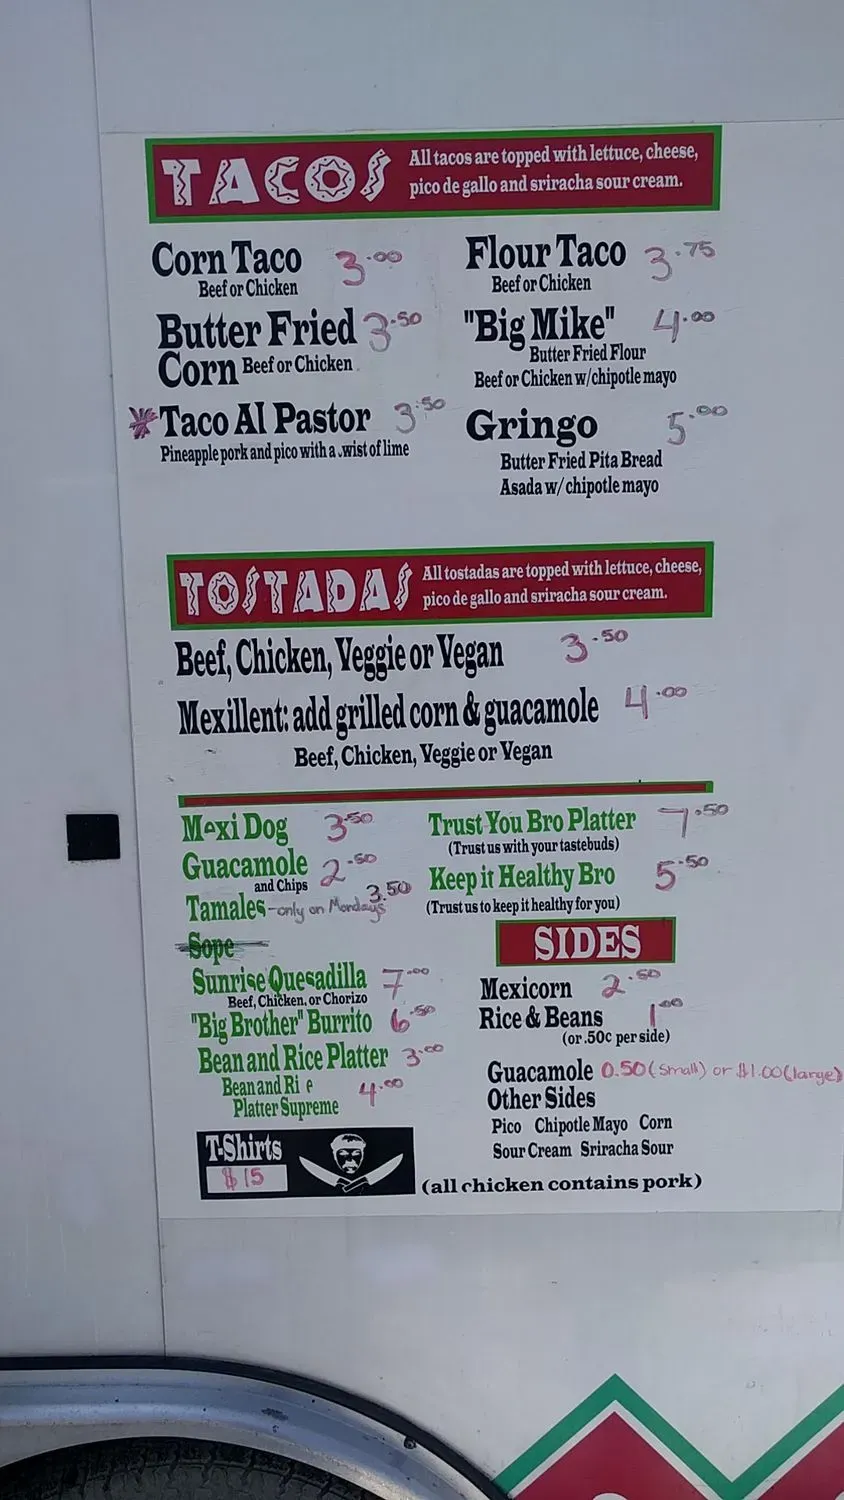 TACOS
All tacos are topped with lettuce, cheese,
pico de gallo and sriracha sour cream.
Corn Taco 3.00
Beef or Chicken
Butter Fried 3.50
Corn Beef or Chicken
Taco Al Pastor 3.50
Pineapple pork and pico with a .wist of lime
Flour Taco 3.75
Beef or Chicken
"Big Mike" 4.00
Butter Fried Flour
Beef or Chicken w/chipotle mayo
Gringo 5.00
Butter Fried Pita Bread
Asada w/chipotle mayo
TOSTADAS
All tostadas are topped with lettuce, cheese,
pico de gallo and sriracha sour cream.
Beef, Chicken, Veggie or Vegan 3.50
Mexillent: add grilled corn & guacamole 4.00
Beef, Chicken, Veggie or Vegan
Mexi Dog 3.50
Guacamole 2.50
and Chips
Tamales - only on Mondays 3.50
Sope
Sunrise Quesadilla 7.00
Beef, Chicken, or Chorizo
"Big Brother" Burrito 6.50
Bean and Rice Platter 3.00
Bean and Ri e 4.00
Platter Supreme
T-Shirts
$15
Trust You Bro Platter 7.50
(Trust us with your tastebuds)
Keep it Healthy Bro 5.50
(Trust us to keep it healthy for you)
SIDES
Mexicorn 2.50
Rice & Beans 1.00
(or .50¢ per side)
Guacamole 0.50 (small) or $1.00 (large)
Other Sides
Pico Chipotle Mayo Corn
Sour Cream Sriracha Sour
(all chicken contains pork)